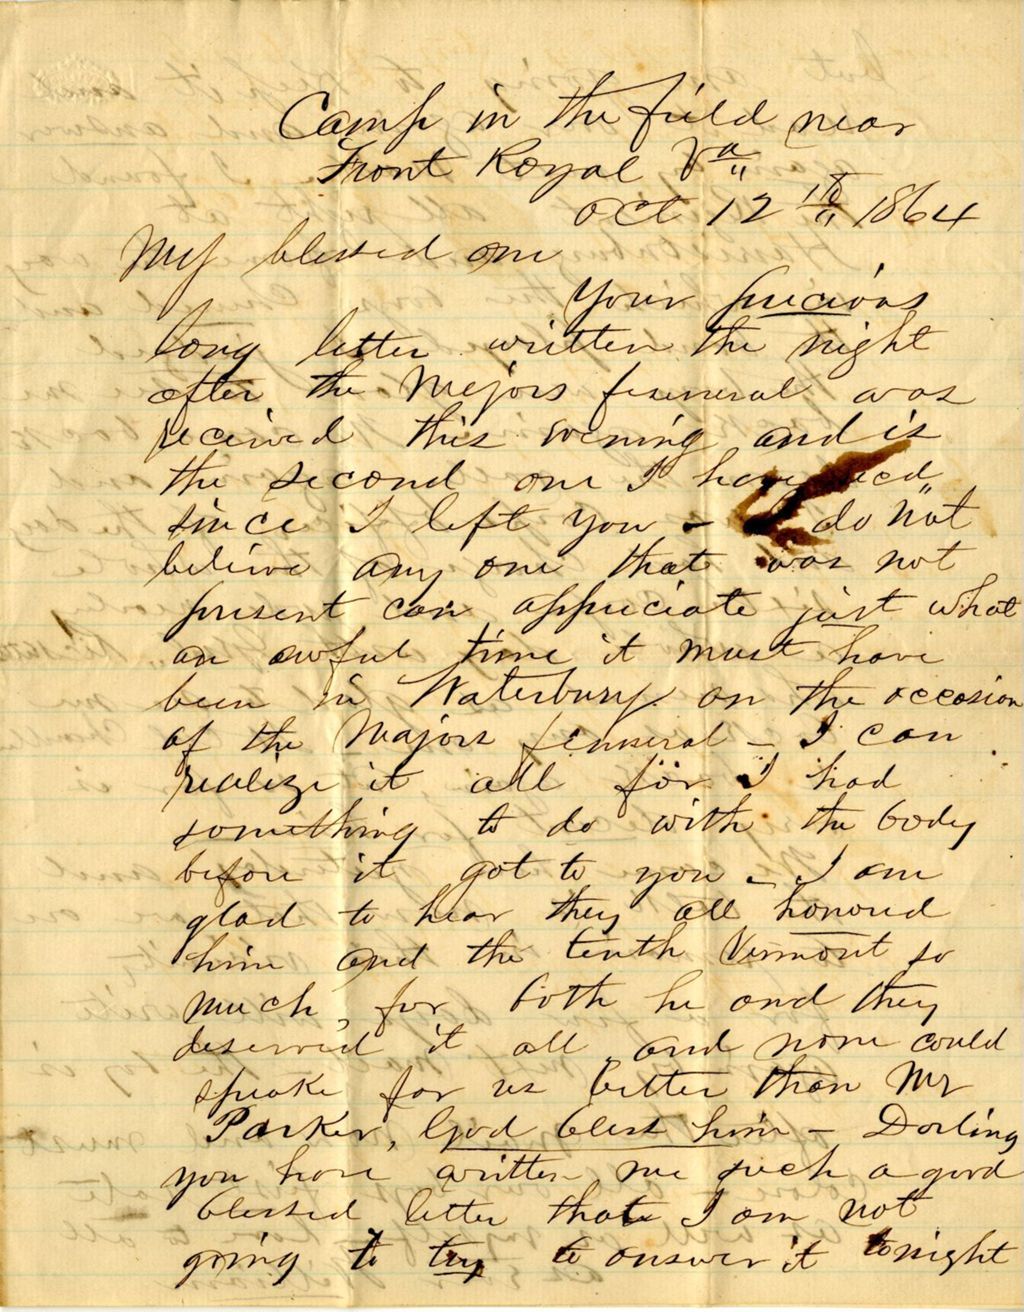 Camp in the field near
Front Royal Va
Oct 12th 1864
My blessed one
Your precious
long letter written the night
after the Majors funeral was
received this evening and is
the second one I have recd
since I left you - do not
believe any one that was not
present can appreciate just what
an awful time it must have
been in Waterbury on the occasion
of the Majors funeral - I can
realize it all for I had
something to do with the body
before it got to you - I am
glad to hear they all honored
him and the tenth Vermont so
much, for both he and they
deserved it all, and none could
speake for us better than Mr
Parker, God bless him - Darling
you have written me such a good
blessed letter that I am not
going to try to answer it tonight